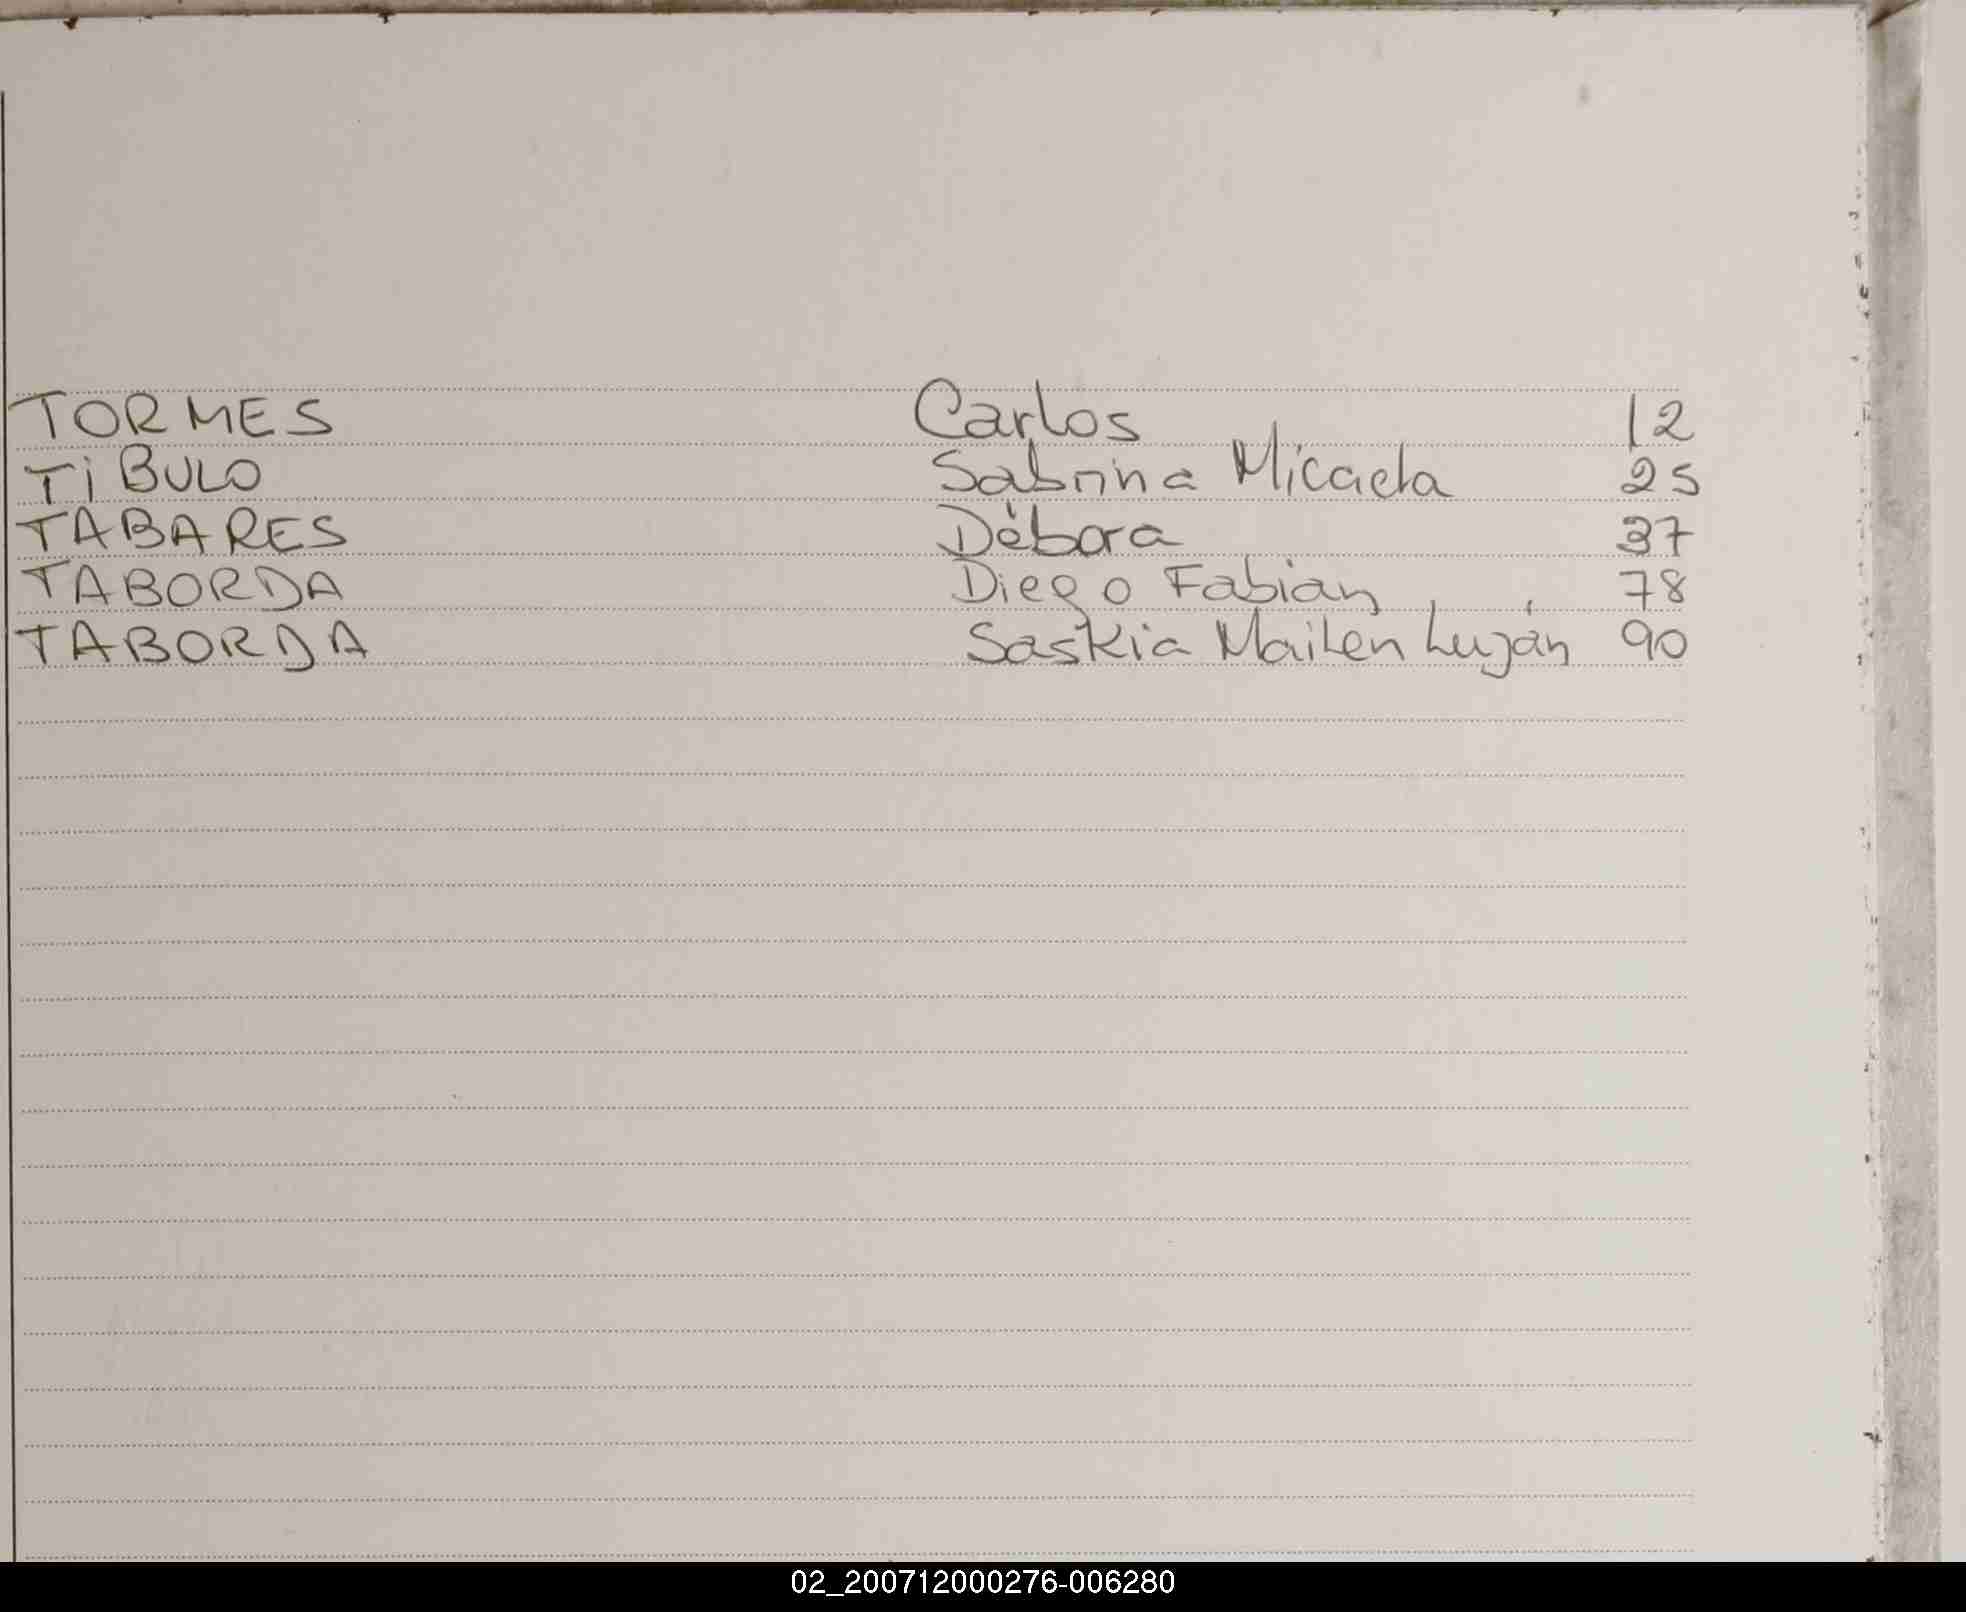 TORMES Carlos 12
TiBULO Sabrina Micaela 25
TABARES Débora 37
TABORDA Diego Fabian 78
TABORDA Saskia Mailen Luján 90
02_200712000276-006280